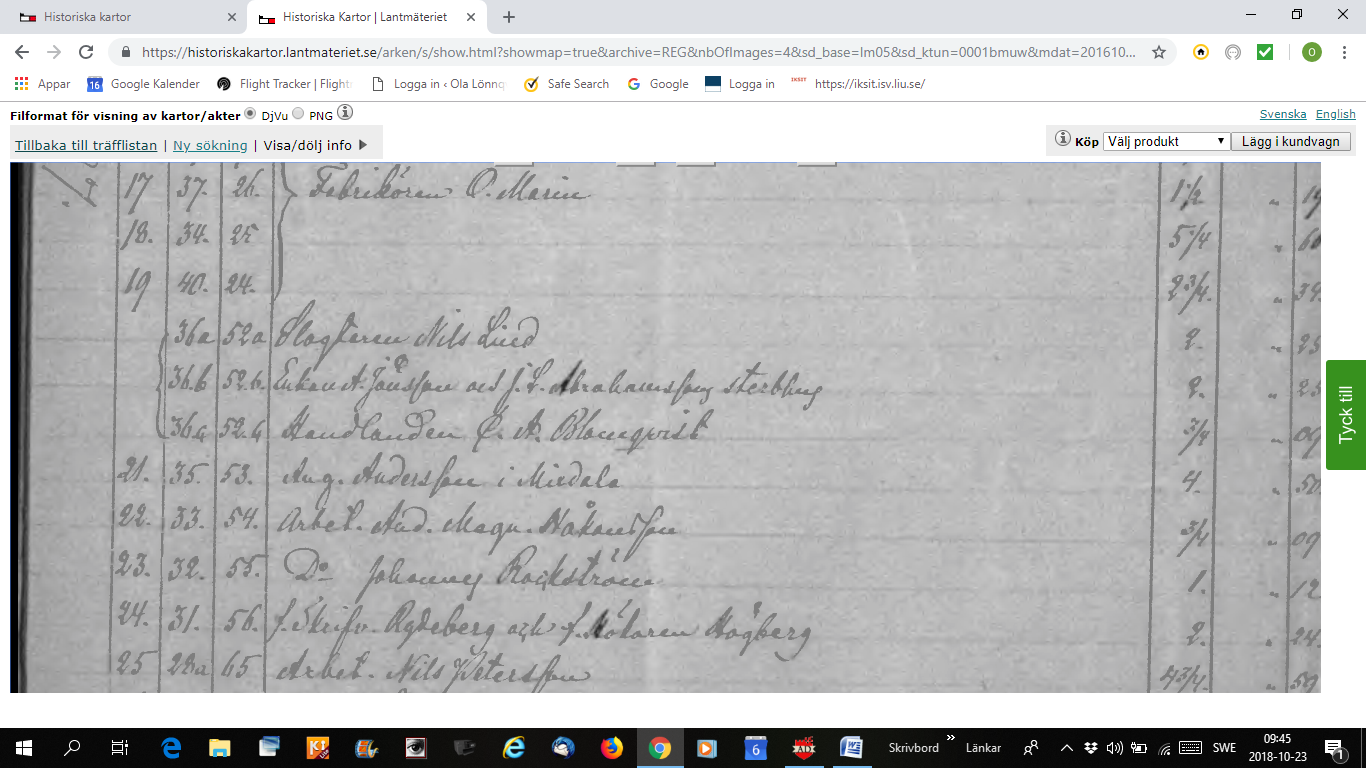 Historiska kartor
Historiska Kartor | Lantmäteriet
https://historiskakartor.lantmateriet.se/arken/s/show.html?showmap=true&archive=REG&nbOfImages=4&sd_base=lm05&sd_ktun=0001bmuw&mdat=201610...
O
Appar
16 Google Kalender
Flight Tracker | Flight
Logga in ‹ Ola Lönnq
Safe Search
Google
Logga in
IKSIT https://iksit.isv.liu.se/
Filformat för visning av kartor/akter DjVu PNG
Svenska English
Tillbaka till träfflistan | Ny sökning | Visa/dölj info
Köp Välj produkt Lägg i kundvagn
17 37. 26. Fabrikören O. Marin 1 1/2 " 19
18. 34. 25 5 1/4 " 60
19 40. 24. 2 3/4. " 34.
36a 52a Slagteren Nils Lind 2. " 25
36.b 52.b. Enkan A. Jönsson och J. L. Abrahamssons sterbhus 2. " 25
52.c Handlanden C. A. Blomqvist 3/4 " 09
21. 35. 53. Aug. Andersson i Miedala 4. " 50
22. 33. 54. Arbet. And. Magn. Håkansson 3/4 " 09
23. 32. 55. Do Johannes Rockström 1. " 12
24. 31. 56. f. Skrifv. Rydeberg och f. Åkaren Högberg 2. " 24
25 28a 65 Arbet. Nils Petersson 4 3/4. " 59
Tyck till
Skrivbord
»
Länkar
SWE
09:45
2018-10-23
6
1